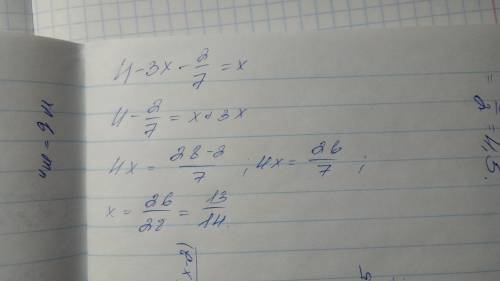 4-3x-2/7=x
4-2/7=x+3x
4x=28-2/7; 4x=26/7;
x=26/28=13/14.